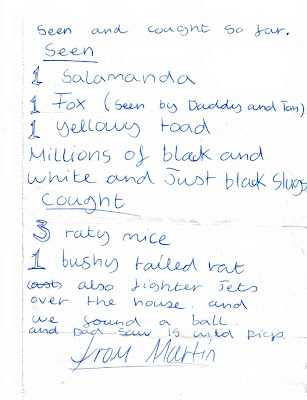 Seen and cought so far.
Seen
1 Salamanda
1 Fox (Seen by Daddy and Tom)
1 yellowy toad
Millions of black and
white and Just black Slugs
Cought
3 raty mice
1 bushy tailed rat
also fighter Jets
over the house. and
we found a ball.
and Dad saw 15 wild pigs.
from Martin